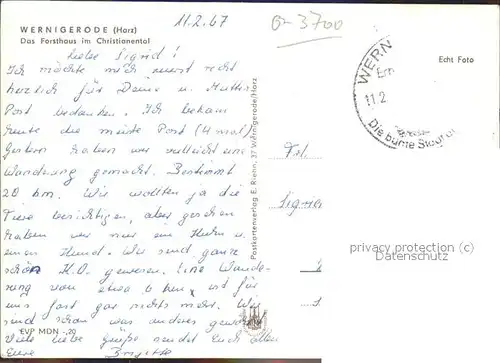 11.2.67
G-3700
WERNIGERODE (Harz)
Das Forsthaus im Christianental
Liebe Sigrid!
Ich möchte mich zuerst recht
herzlich für Deine u. Mutter
Post bedanken. Ich bekam
heute die meiste Post (4 mal).
Gestern haben wir vielleicht eine
Wanderung gemacht. Bestimmt
20 km. Wir wollten ja die
Tiere besichtigen, aber gesehen
haben wir nur ein Huhn u.
einen Hund. Wir sind ganz
schön K.O. gewesen. Eine Wande-
rung von etwa 6 km ist für
uns fast gar nichts mehr. Wir
sind schon was anderes gewöhnt.
Viele liebe Grüße sendet Euch allen
Eure Brigitte
EVP MDN -,20
Postkartenverlag E. Riehn, 37 Wernigerode/Harz
Echt Foto
WERN
11.2
Die bunte Stadt a
Frl.
Sigri
privacy protection copyright
Datenschutz